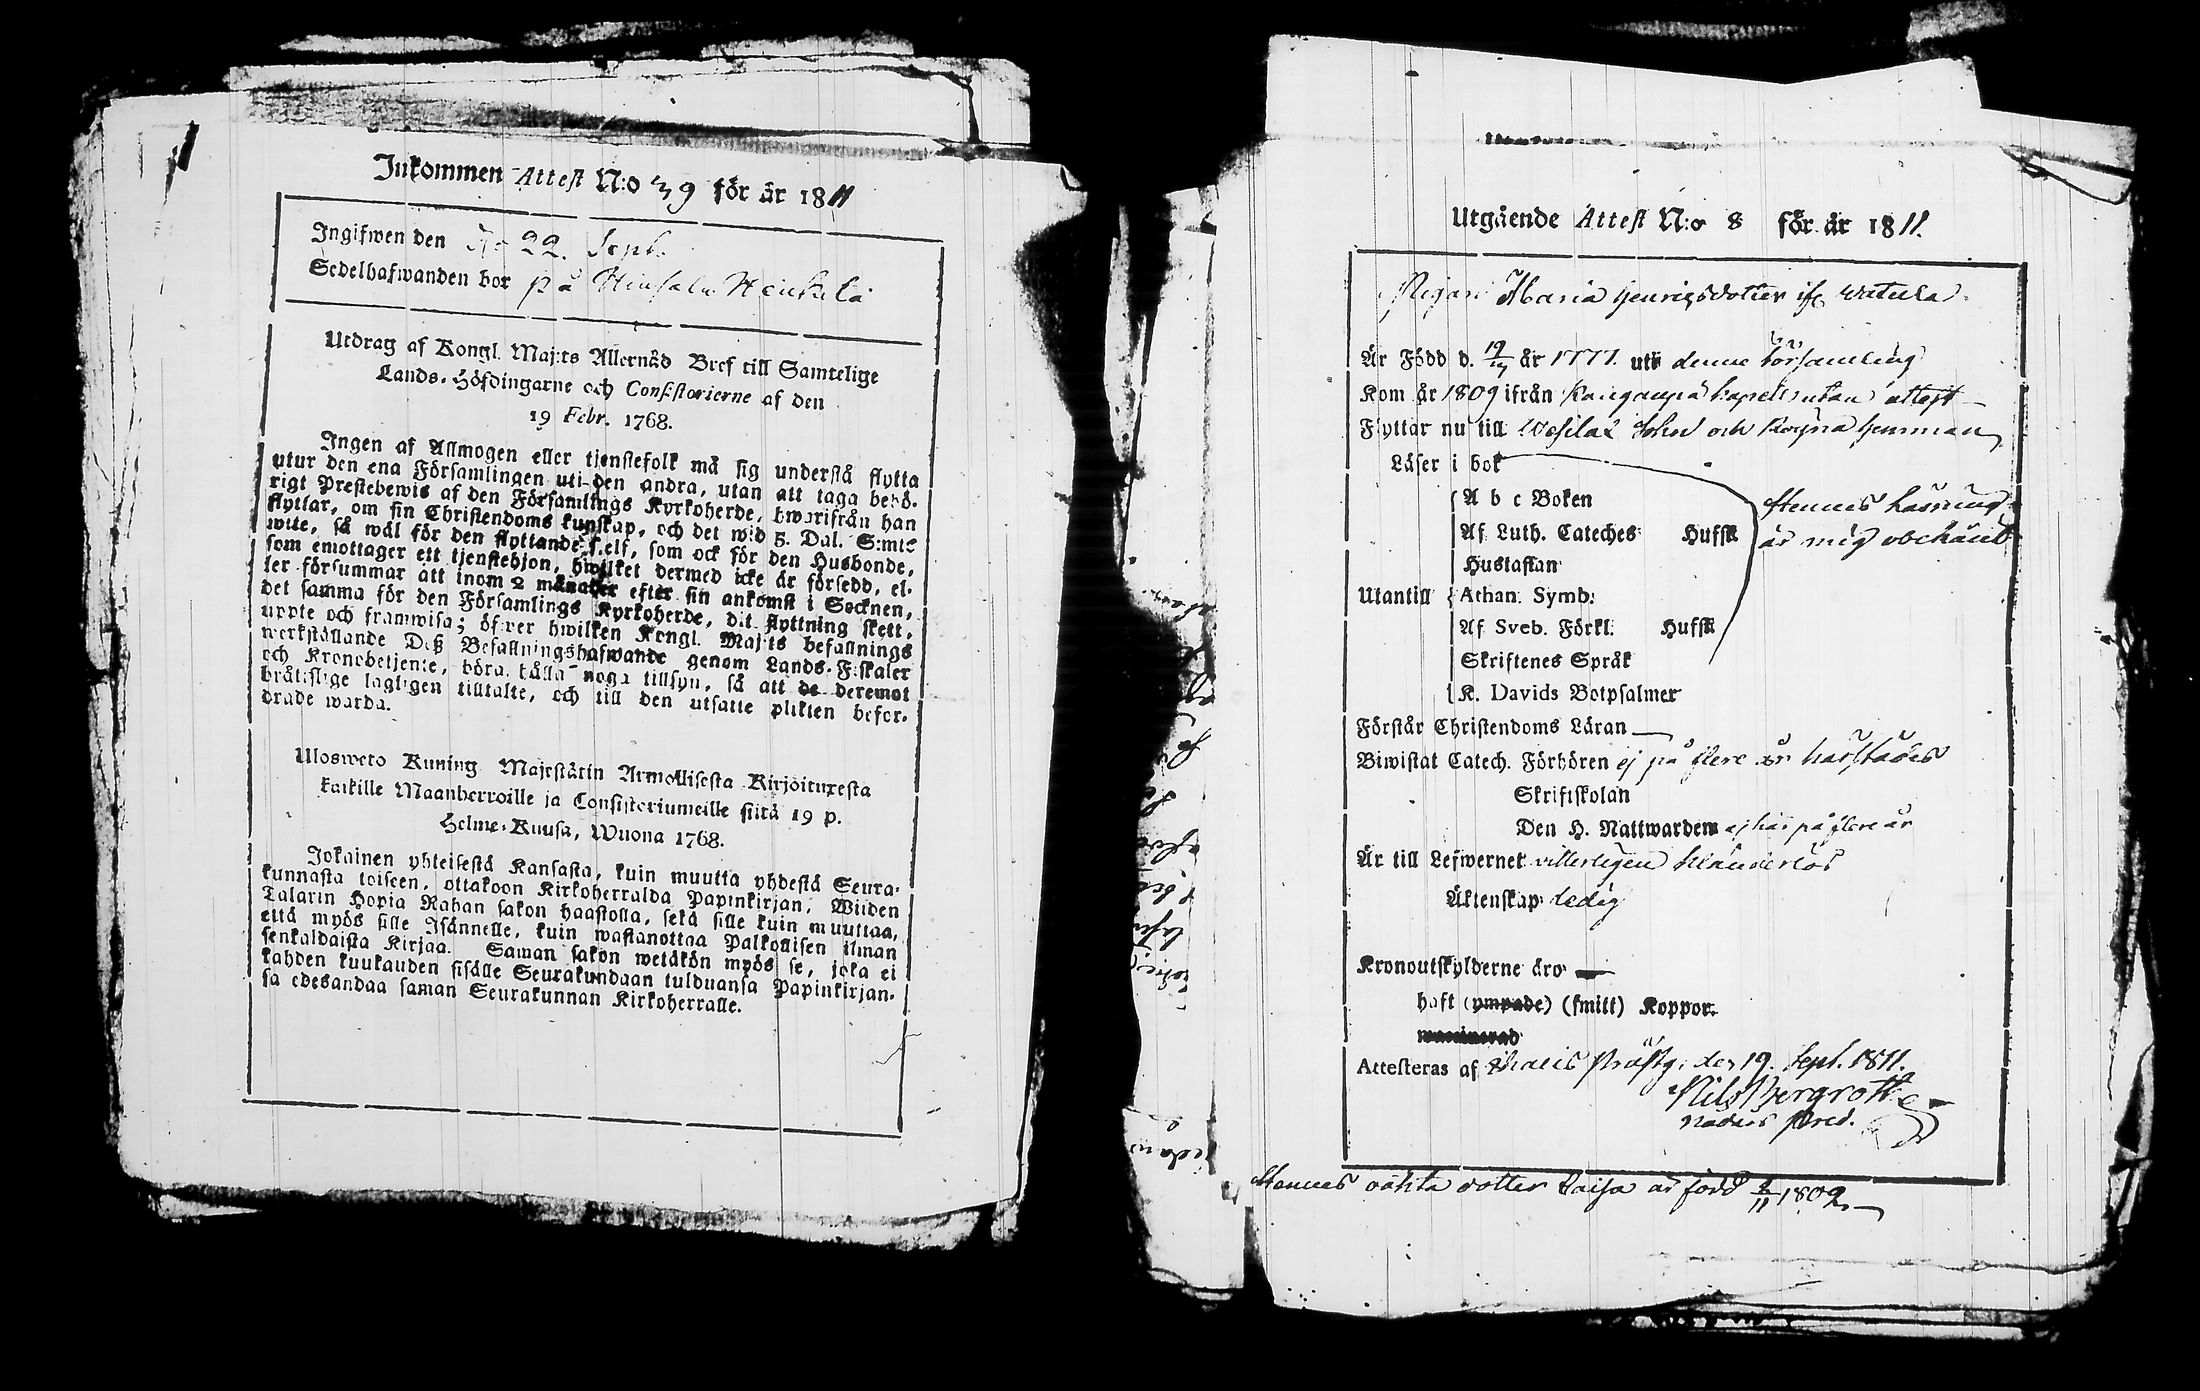 Inkommen Attest N:o 39 för år 1811
Ingifwen den 22. Sept.
Sedelhafwanden bor på Heikkilä
Utdrag af Kongl. Maj:ts Allernåd Bref till Samtelige
Lands-Höfdingarne och Consistorierne af den
19 Febr. 1768.
Ingen af Allmogen eller tjenstefolk må sig understå flytta
utur den ena Församlingen uti den andra, utan att taga behö-
rigt Prestebewis af den Församlings Kyrkoherde, hwarifrån han
flyttar, om sin Christendoms kunskap, och det wid 5. Dal. S:mts
wite, så wäl för den flyttande sielf, som ock för den Husbonde,
som emottager ett tjenstehjon, hwilket dermed icke är försedd, el-
ler försummar att inom 2 månader efter sin ankomst i Socknen,
det samma för den Församlings Kyrkoherde, dit flyttning skett,
uppte och framwisa; öfwer hwilken Kongl. Maj:ts befallnings
werkställande Deß Befallningshafwande genom Lands-Fiskaler
och Kronobetjente, böra hålla noga tillsyn, så att de deremot
bråtslige lagligen tilltalte, och till den utsatte plikten befor-
drade warda.
Ulosweto Kuning. Majestätin Armollisesta Kirjoituxesta
kaikille Maanherroille ja Consistoriumeille siitä 19 p.
Helme-Kuusa, Wuona 1768.
Jokainen yhteisestä Kansasta, kuin muutta yhdestä Seura-
kunnasta toiseen, ottakoon Kirkoherralda Papinkirjan, Wiiden
Talarin Hopia Rahan sakon haastolla, sekä sille kuin muuttaa,
että myös sille Isännelle, kuin wastanottaa Palkollisen ilman
senkaldaista Kirjaa. Saman sakon wetäkön myös se, joka ei
kahden kuukauden sisälle Seurakundaan tulduansa Papinkirjan-
sa edesandaa saman Seurakunnan Kirkoherralle.
Utgående Attest N:o 8 för år 1811.
Pigan Maria Henrigsdotter ifr Watula
Är Född d. 19/7 år 1777. uti denna församling
Kom år 1809 ifrån Kangasnpä kapell utan attest
Flyttar nu till Wesilax Sokn och
Läser i bok
A b c Boken
Af Luth. Cateches Hufst
Hustaflan
Utantill Athan. Symb.
Af Sveb. Förkl. Hufst
Skriftenes Språk
K. Davids Botpsalmer
Hennes läsning
är mig obekant
Förstår Christendoms Läran —
Biwistat Catech. Förhören ej på flere år härstädes
Skriftskolan
Den H. Nattwarden ej här på flere år
Är till Lefwernet witterligen klanderlös
Äktenskap ledig
Kronoutskylderne äro —
haft (ympade) (smitt) Koppor.
waccinerad
Attesteras af Prästg. den 19. Sept. 1811.
Nils Bergroth
Nådårs Pred.
Hennes oäkta dotter Caisa är född 2/11 1809